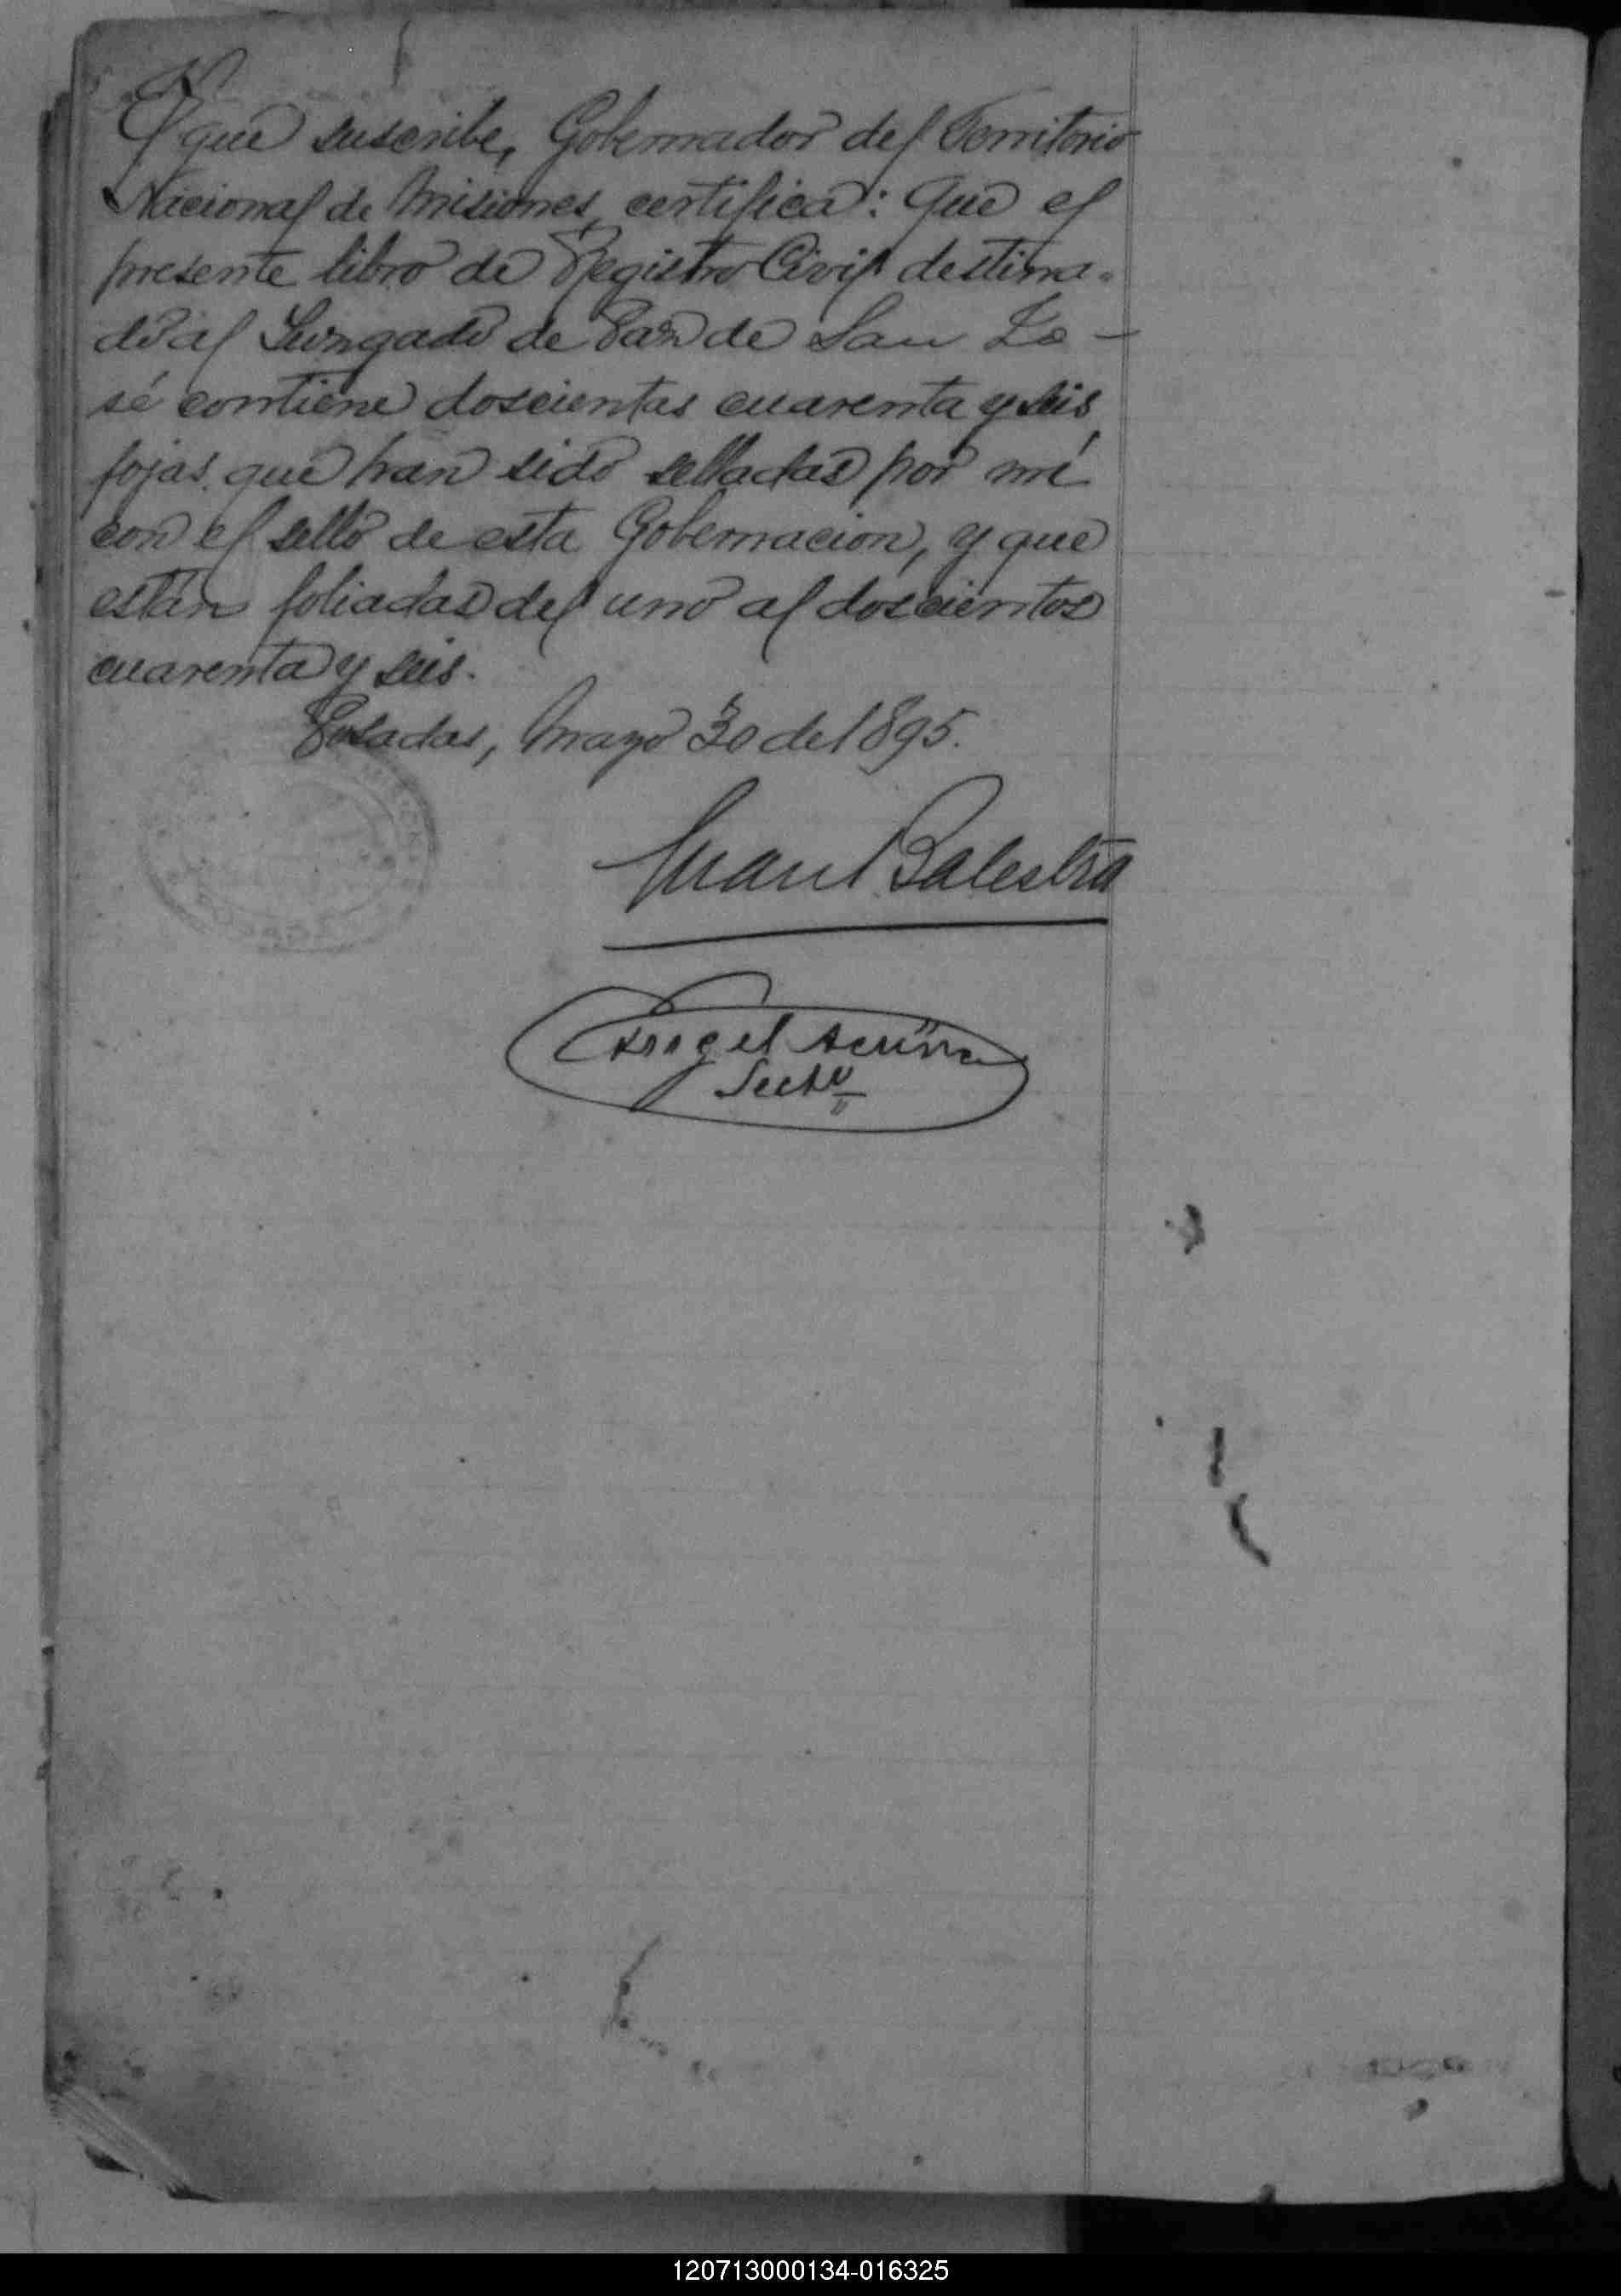 El que suscribe, Gobernador del Territorio
Nacional de Misiones, certifica: Que el
presente libro de Registro Civil destina-
do al Juzgado de Paz de San Jo-
sé contiene doscientas cuarenta y seis
fojas, que han sido selladas por mí
con el sello de esta Gobernacion, y que
están foliadas del uno al doscientos
cuarenta y seis.
Posadas, Mayo 30 de 1895.
Juan Balestra
Angel Acuña
Secto
120713000134-016325